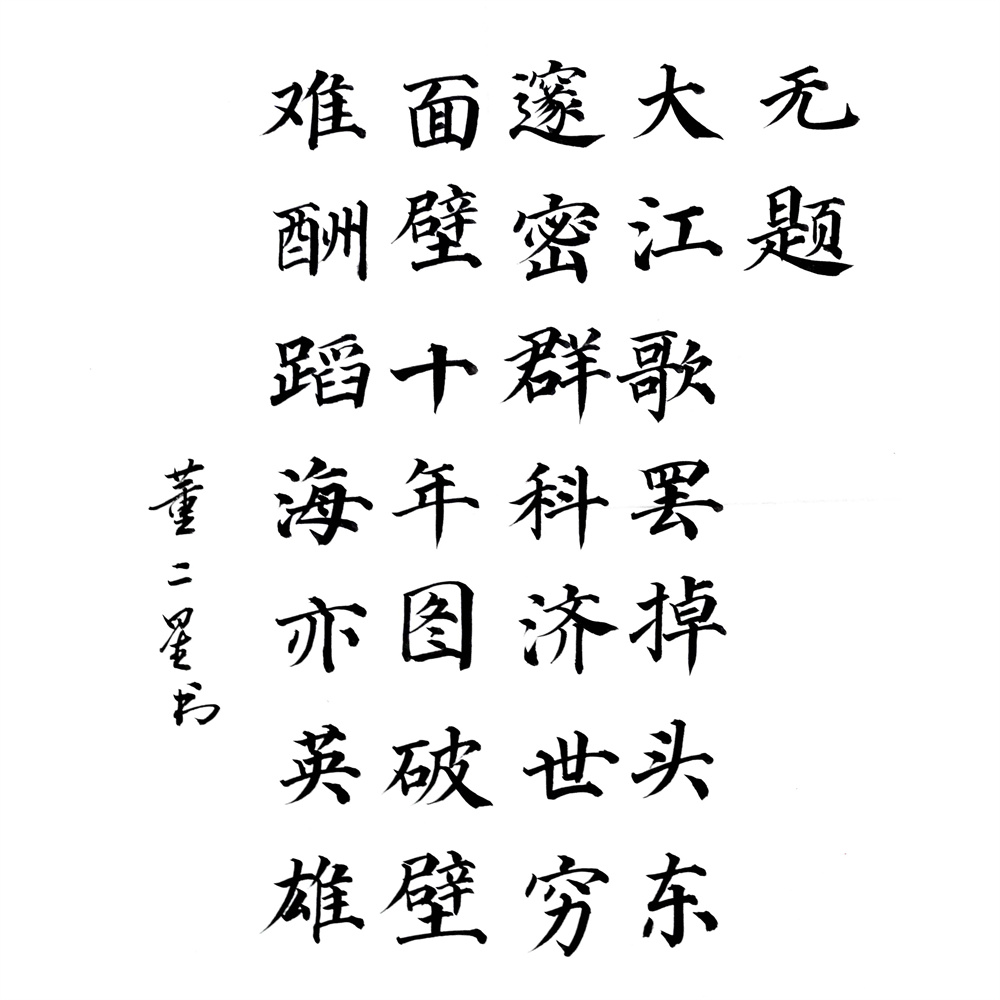 无题
大江歌罢掉头东
邃密群科济世穷
面壁十年图破壁
难酬蹈海亦英雄
董二星书